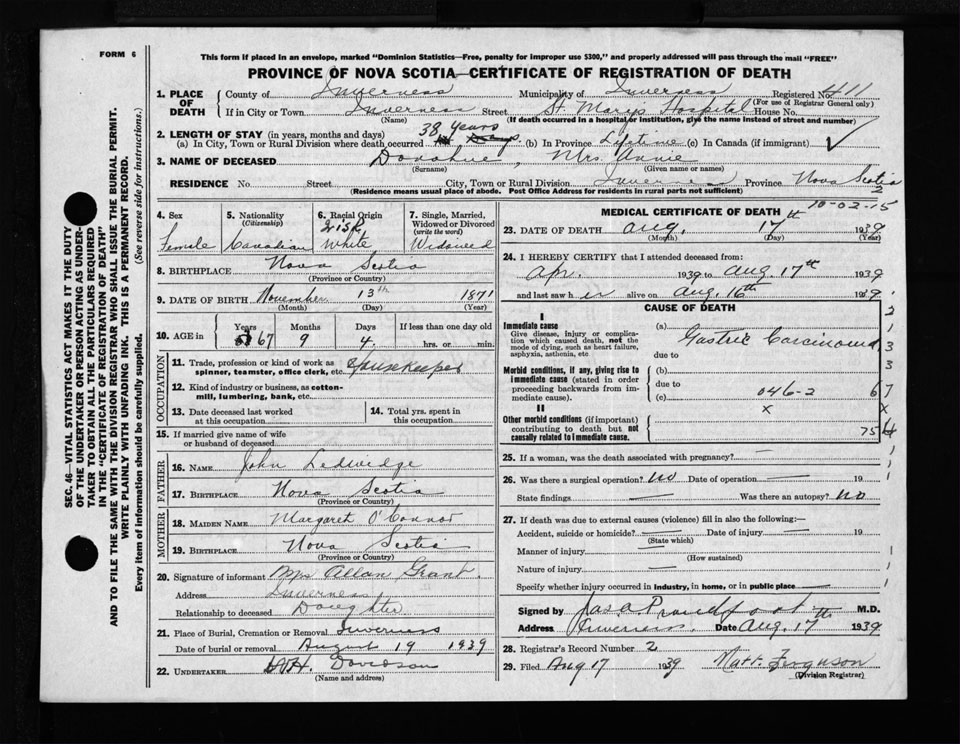 FORM 6
This form if placed in an envelope, marked "Dominion Statistics—Free, penalty for improper use $300," and properly addressed will pass through the mail "FREE"
PROVINCE OF NOVA SCOTIA—CERTIFICATE OF REGISTRATION OF DEATH
SEC. 46—VITAL STATISTICS ACT MAKES IT THE DUTY
OF THE UNDERTAKER OR PERSON ACTING AS UNDER-
TAKER TO OBTAIN ALL THE PARTICULARS REQUIRED
IN THE "CERTIFICATE OF REGISTRATION OF DEATH"
AND TO FILE THE SAME WITH THE DIVISION REGISTRAR WHO SHALL ISSUE THE BURIAL PERMIT.
WRITE PLAINLY WITH UNFADING INK. THIS IS A PERMANENT RECORD.
Every item of information should be carefully supplied. (See reverse side for instructions.)
1. PLACE OF DEATH County of Inverness Municipality of Inverness Registered No. 411
(For use of Registrar General only)
If in City or Town Inverness Street St. Marys Hospital House No.
(Name) (If death occurred in a hospital or institution, give the name instead of street and number)
2. LENGTH OF STAY (in years, months and days)
(a) In City, Town or Rural Division where death occurred 38 years (b) In Province Lifetime (c) In Canada (if immigrant) ✓
3. NAME OF DECEASED Donohue, Mrs. Annie
(Surname) (Given name or names)
RESIDENCE No. Street City, Town or Rural Division Inverness Province Nova Scotia
(Residence means usual place of abode. Post Office Address for residents in rural parts not sufficient) 2
4. Sex Female
5. Nationality (Citizenship) Canadian
6. Racial Origin Irish White
7. Single, Married, Widowed or Divorced (write the word) Widowed
8. BIRTHPLACE Nova Scotia
(Province or Country)
9. DATE OF BIRTH November 13th 1871
(Month) (Day) (Year)
10. AGE in Years 67 Months 9 Days 4 If less than one day old hrs. or min.
OCCUPATION
11. Trade, profession or kind of work as spinner, teamster, office clerk, etc. Housekeeper
12. Kind of industry or business, as cotton-mill, lumbering, bank, etc.
13. Date deceased last worked at this occupation
14. Total yrs. spent in this occupation
15. If married give name of wife or husband of deceased
FATHER
16. NAME John Ledwidge
17. BIRTHPLACE Nova Scotia
(Province or Country)
MOTHER
18. MAIDEN NAME Margaret O'Connor
19. BIRTHPLACE Nova Scotia
(Province or Country)
20. Signature of informant Mrs Allan Grant.
Address Inverness
Relationship to deceased Daughter
21. Place of Burial, Cremation or Removal Inverness
Date of burial or removal August 19 1939
22. UNDERTAKER Davidson
(Name and address)
MEDICAL CERTIFICATE OF DEATH 10-02-15
23. DATE OF DEATH Aug. 17th 1939
(Month) (Day) (Year)
24. I HEREBY CERTIFY that I attended deceased from:
Apr. 1939 to Aug 17th 1939
and last saw her alive on Aug. 16th 1939
CAUSE OF DEATH
I
Immediate cause
Give disease, injury or complication which caused death, not the mode of dying, such as heart failure, asphyxia, asthenia, etc
(a) Gastric Carcinoma
due to
Morbid conditions, if any, giving rise to immediate cause (stated in order proceeding backwards from immediate cause).
(b)
due to
(c) 046-2 67
II
Other morbid conditions (if important) contributing to death but not causally related to immediate cause.
x
75
25. If a woman, was the death associated with pregnancy? —
26. Was there a surgical operation? No Date of operation — 19
State findings — Was there an autopsy? No
27. If death was due to external causes (violence) fill in also the following:—
Accident, suicide or homicide? — Date of injury — 19
(State which)
Manner of injury —
(How sustained)
Nature of injury —
Specify whether injury occurred in Industry, in home, or in public place —
Signed by Jas A Proudfoot M.D.
Address Inverness. Date Aug. 17th 1939
28. Registrar's Record Number 2
29. Filed Aug 17 1939 Matt. Ferguson
(Division Registrar)